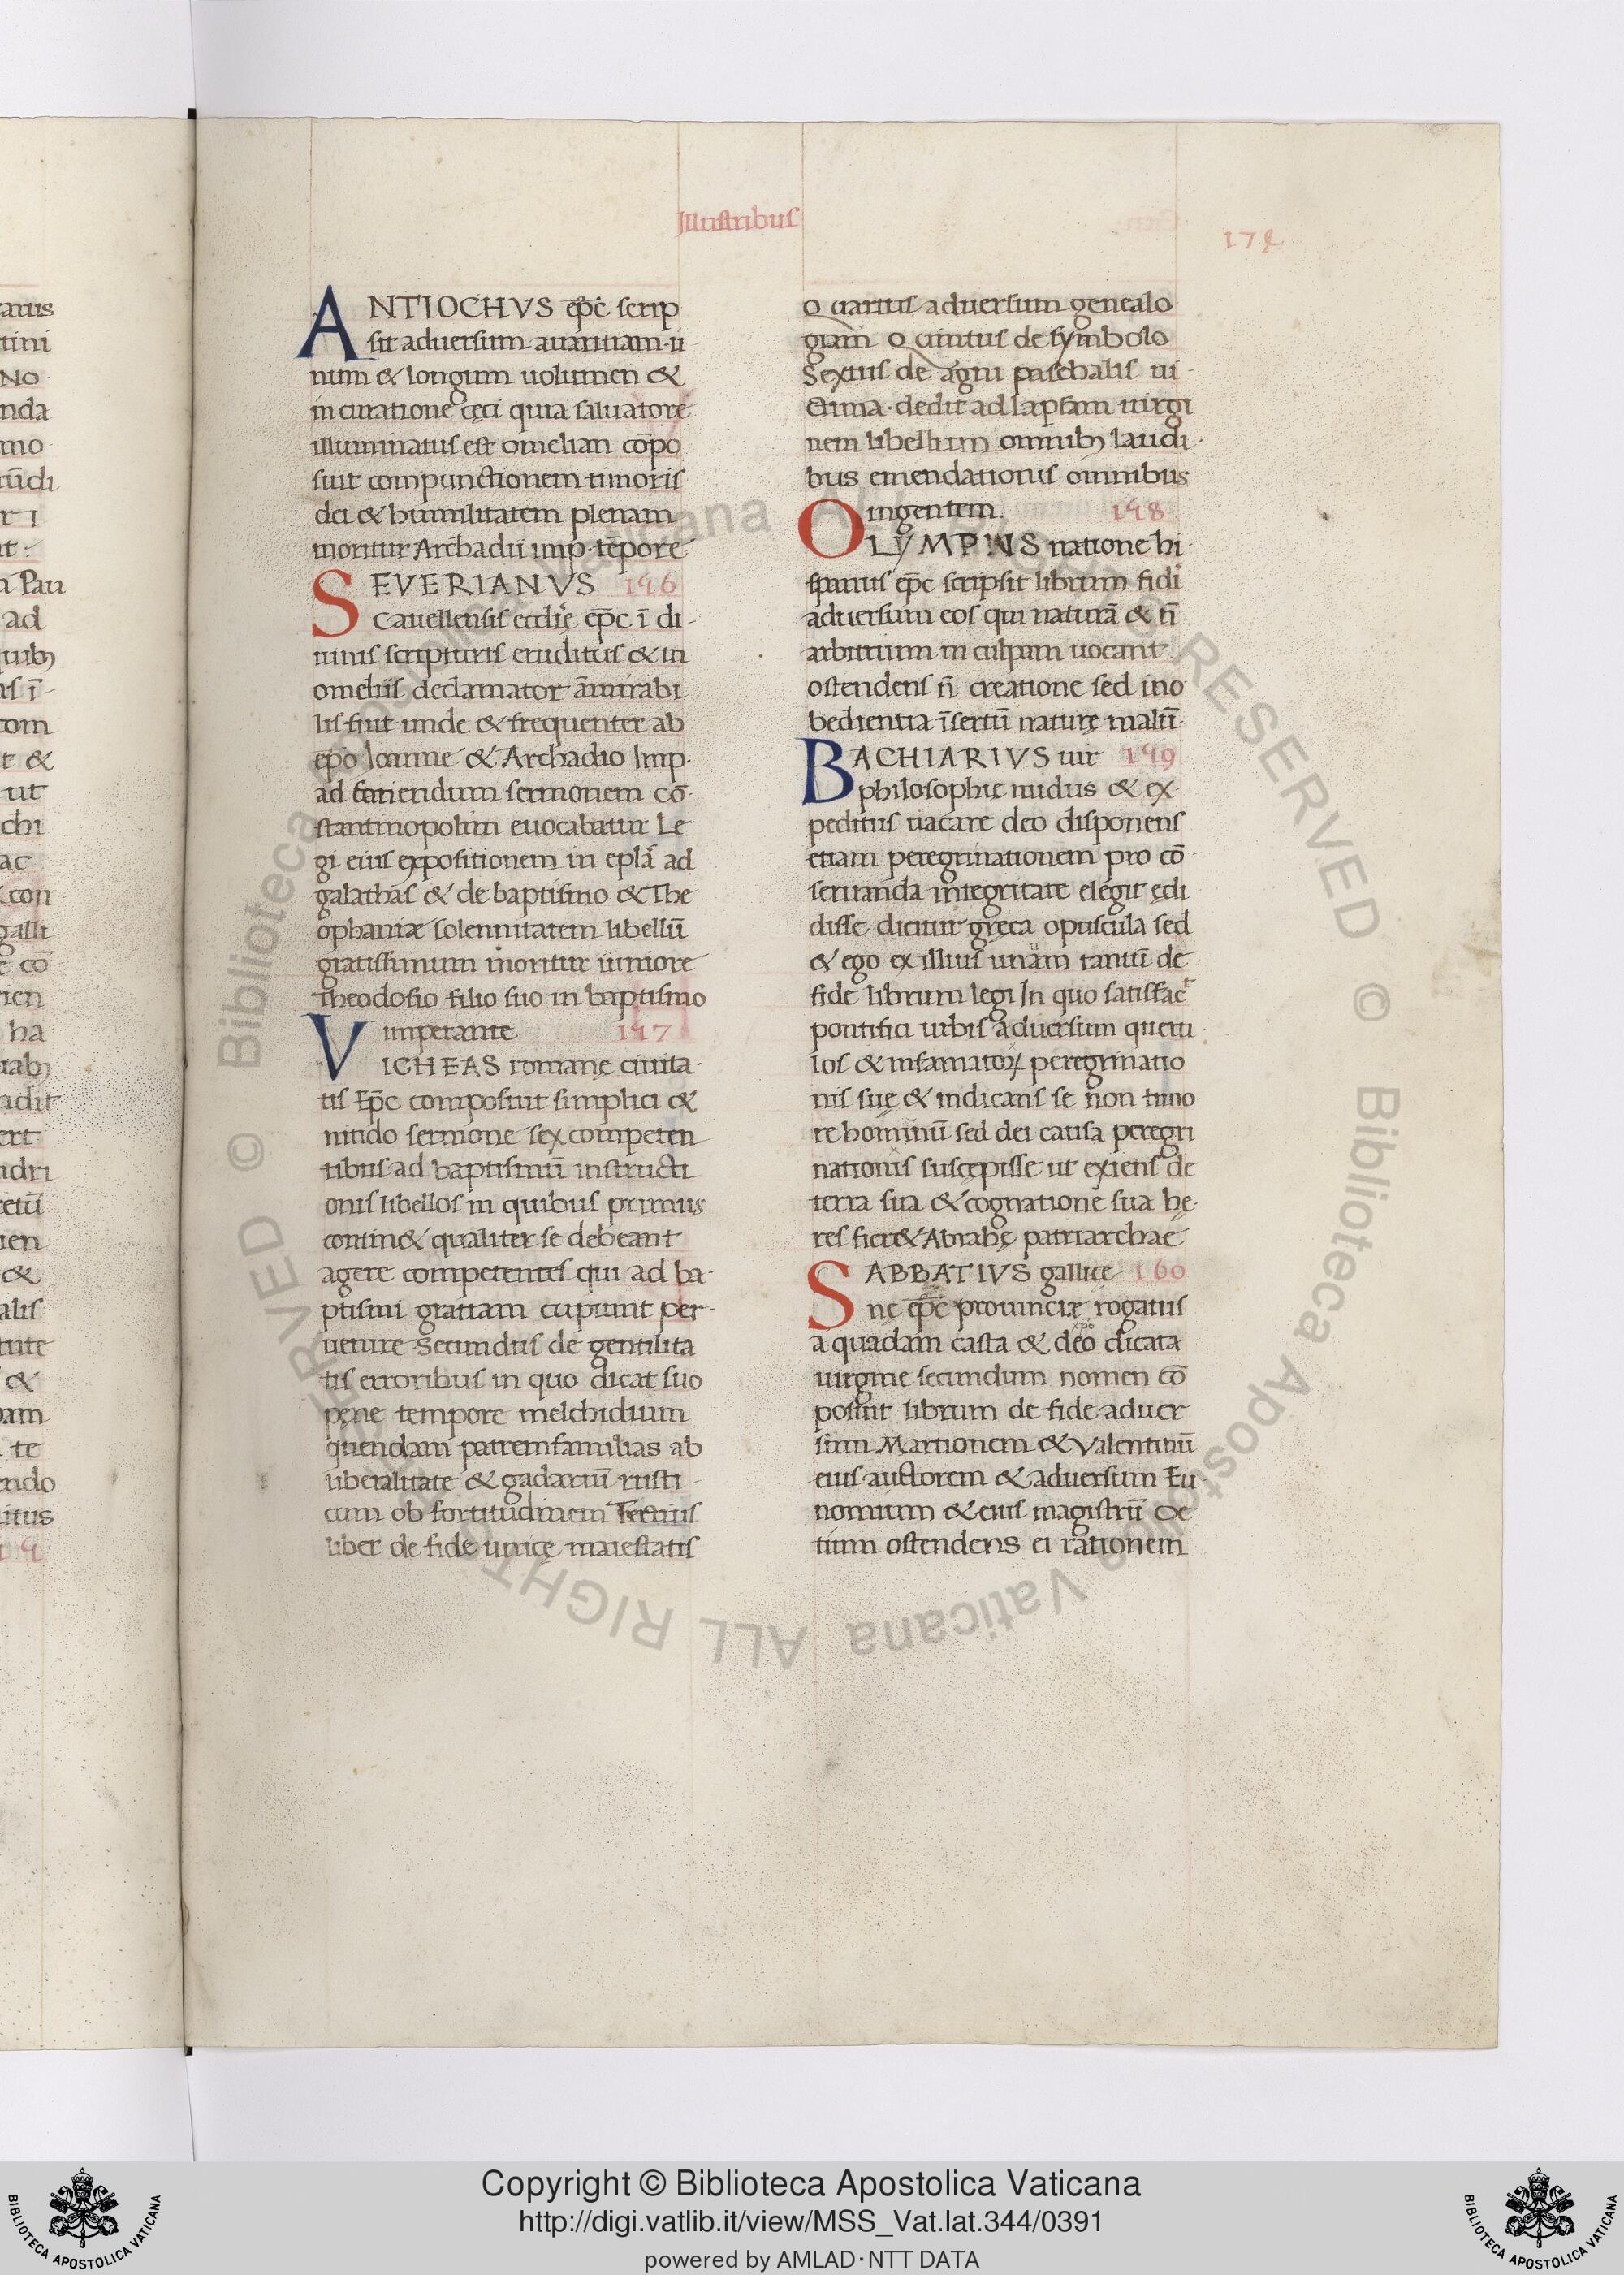 Illustribus
174
ANTIOCHVS ep̄c scrip
sit aduersum auaritiam u
num & longum uolumen &
in curatione cęci quia saluatore
illuminatus est omelian cōpo
suit compunctionem timoris
dei & humilitatem plenam
moritur Archadii imp. tēpore
SEVERIANVS 146
Cauellensis eccl̄ię ep̄c ī di-
uinis scripturis eruditus & in
omeliis declamator āmirabi
lis fuit unde & frequenter ab
ep̄o Ioanne & Archadio Imp.
ad faciendum sermonem cō-
stantinopolim euocabatur Le
gi eius expositionem in epl̄a ad
galathas & de baptismo & The
ophaniæ solennitatem libellū
gratissimum moritur iuniore
Theodosio filio suo in baptismo
imperante 147
VICHEAS romanę ciuita-
tis Ep̄c composuit simplici &
nitido sermone sex competen
tibus ad baptismū instructi
onis libellos in quibus primus
contin& qualiter se debeant
agere competentes qui ad ba-
ptismi gratiam cupiunt per-
uenire Secundus de gentilita
tis erroribus in quo dicat suo
pene tempore melchidium
quendam patremfamilias ab
liberalitate & gadariū rusti-
cum ob fortitudinem Tertius
liber de fide unicę maiestatis
Quartus aduersum genealo
giam Quintus de symbolo
Sextus de agni paschalis ui-
ctima dedit ad lapsam uirgi
nem libellum omnibꝫ laudi-
bus emendationis omnibus
ingentem. 148
OLYMPIVS natione hi-
spanus ep̄c scripsit librum fidi
aduersum eos qui naturā & n̄
arbitrium in culpam uocant
ostendens n̄ creatione sed ino
bedientia īsertū naturę malū
BACHIARIVS uir 149
philosophie nudus & ex-
peditus uacare deo disponens
etiam peregrinationem pro cō-
seruanda integritate elegit ędi
disse dicitur gręca opuscula sed
& ego ex illius unam tantū de
fide librum legi In quo satisfac
pontifici urbis aduersum queru
los & infamatoꝝ peregrinatio
nis suę & indicans se non timo
re hominū sed dei causa peregri
nationis suscępisse ut exiens de
terra sua & cognatione sua hę-
res fier& Abrahę patriarchae
SABBATIVS gallice 160
nę ep̄c prouinciæ rogatus
xp̄o
a quadam casta & deo dicata
uirgine secundum nomen cō
posuit librum de fide aduer
sum Martionem & Valentinū
eius auctorem & aduersum Eu-
nomium & eius magistrū Oe
tium ostendens ei rationem
Copyright © Biblioteca Apostolica Vaticana
http://digi.vatlib.it/view/MSS_Vat.lat.344/0391
powered by AMLAD·NTT DATA
BIBLIOTECA APOSTOLICA VATICANA
BIBLIOTECA APOSTOLICA VATICANA